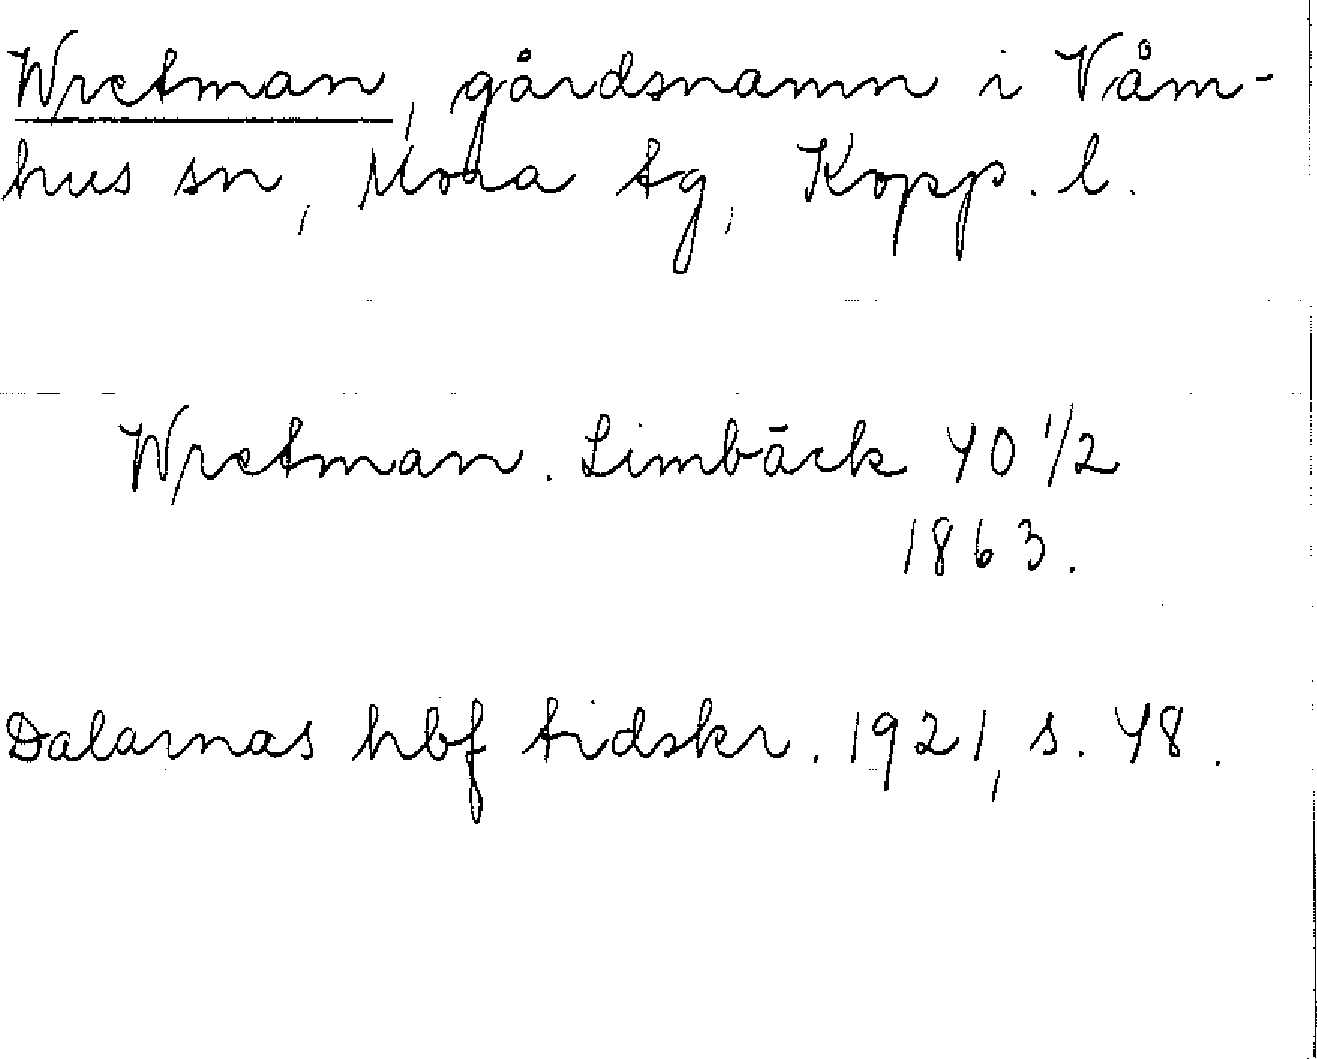 Wretman, gårdsnamn i Våm-
hus sn, Mora tg, Kopp. l.
Wretman. Limbäck 40 1/2
1863.
Dalarnas hbf tidskr. 1921, s. 48.